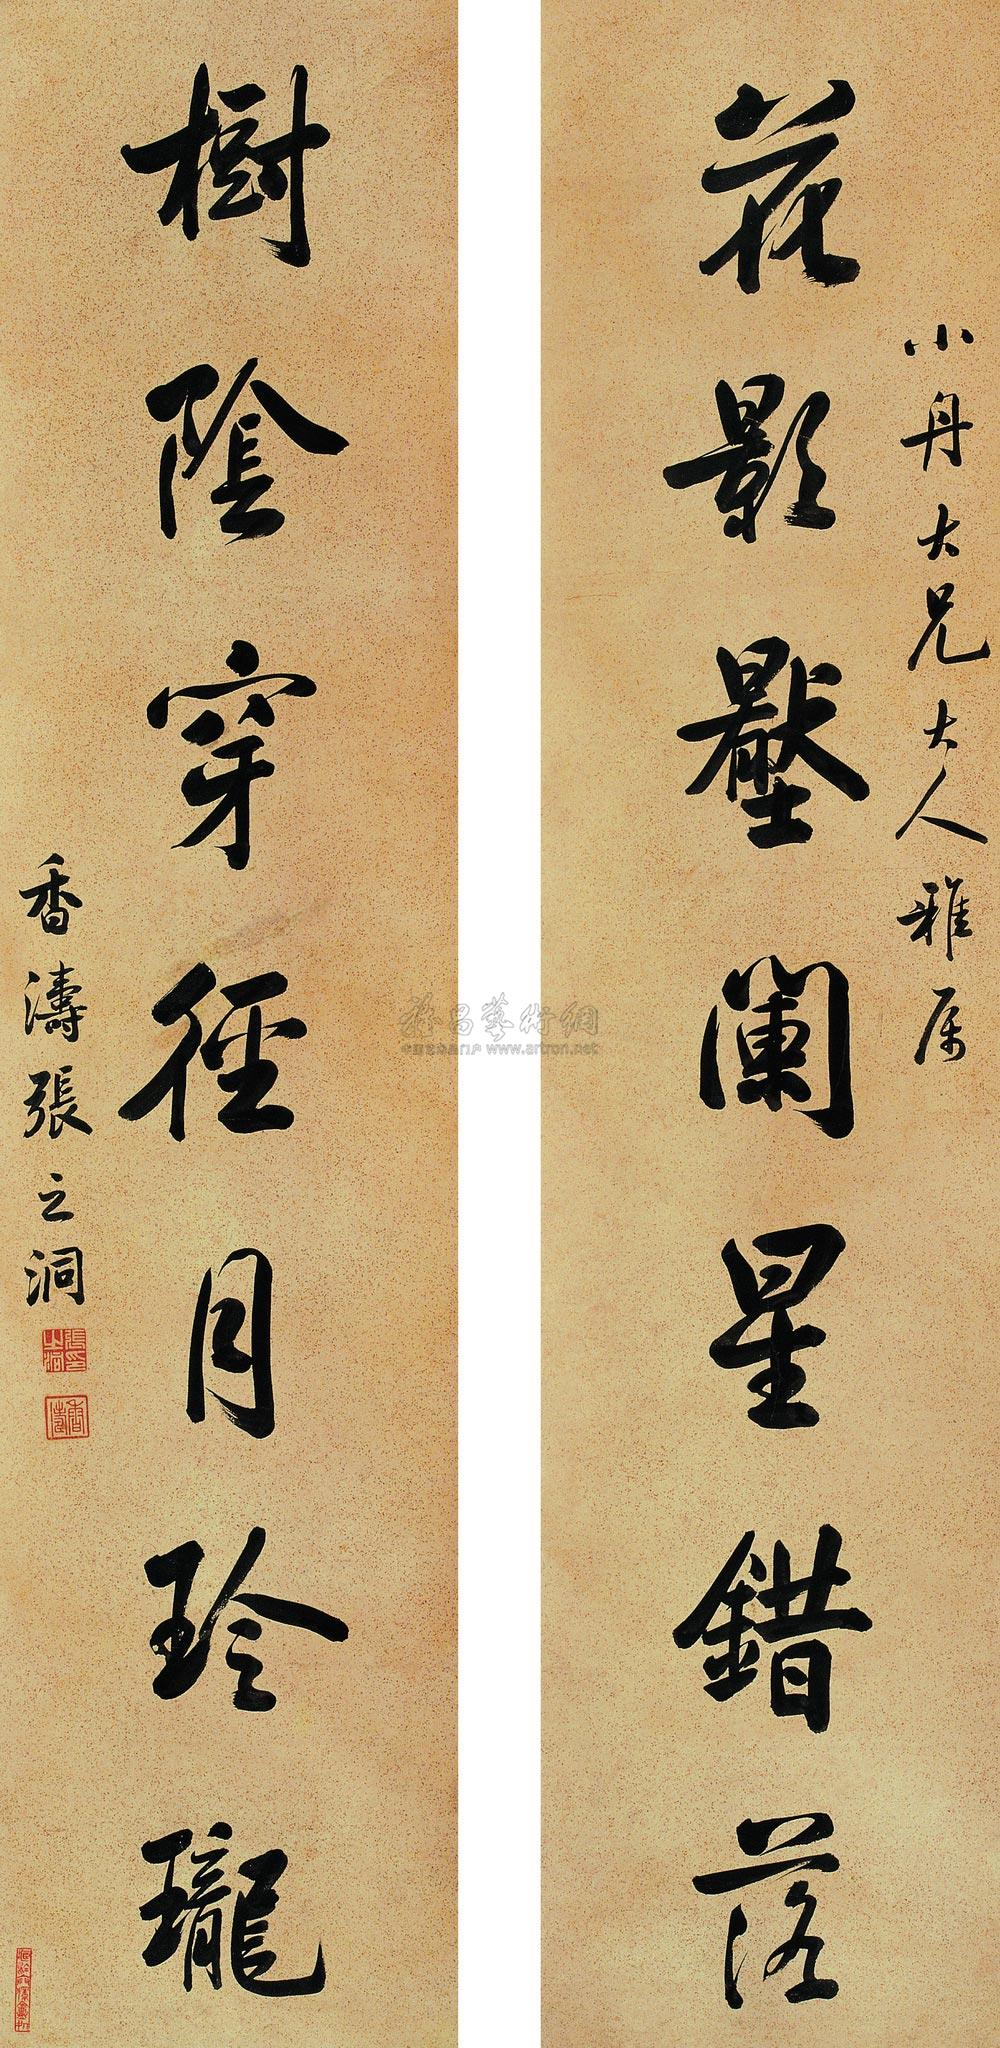 小舟大兄大人雅属
花影壓闌星錯落
樹陰穿徑月玲瓏
香濤張之洞
張之洞印
香濤
www.artron.net